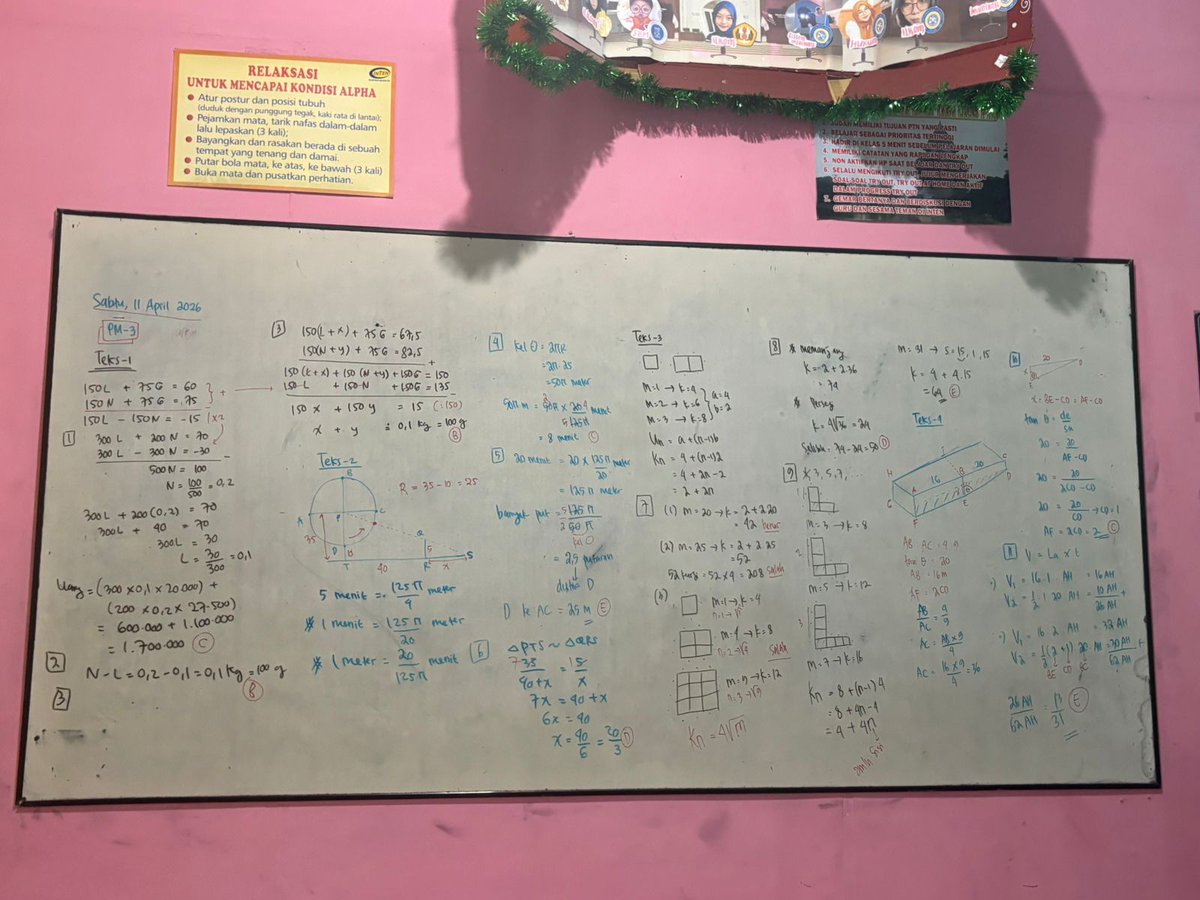 RELAKSASI
UNTUK MENCAPAI KONDISI ALPHA
INTEN
Atur postur dan posisi tubuh
(duduk dengan punggung tegak, kaki rata di lantai);
Pejamkan mata, tarik nafas dalam-dalam
lalu lepaskan (3 kali);
Bayangkan dan rasakan berada di sebuah
tempat yang tenang dan damai.
Putar bola mata, ke atas, ke bawah (3 kali)
Buka mata dan pusatkan perhatian.
MEMILIKI TUJUAN PTN YANG PASTI
2. BELAJAR SEBAGAI PRIORITAS TERTINGGI
3. HADIR DI KELAS 5 MENIT SEBELUM PELAJARAN DIMULAI
4. MEMILIKI CATATAN YANG RAPI DAN LENGKAP
5. NON AKTIFKAN HP SAAT BELAJAR DAN TRY OUT
6. SELALU MENGIKUTI TRY OUT, JUJUR MENGERJAKAN
SOAL-SOAL TRY OUT, TRY OUT AT HOME DAN AKTIF
DALAM PROGRESS TRY OUT
7. GEMAR BERTANYA DAN BERDISKUSI DENGAN
GURU DAN SESAMA TEMAN DI INTEN
Sabtu, 11 April 2026
PM-3
Teks-1
150L + 75G = 60
150N + 75G = 75
150L - 150N = -15 (x2
1
300L + 200N = 70
300L - 300N = -30
500N = 100
N = 100/500 = 0,2
300L + 200(0,2) = 70
300L + 40 = 70
300L = 30
L = 30/300 = 0,1
Uang = (300 x 0,1 x 20.000) +
(200 x 0,2 x 27.500)
= 600.000 + 1.100.000
= 1.700.000 C
2
N-L = 0,2 - 0,1 = 0,1 kg = 100 g
B
3
3
150(L+x) + 75G = 67,5
150(N+y) + 75G = 82,5
150(L+x) + 150(N+y) + 150G = 150
150L + 150N + 150G = 135
150x + 150y = 15 (:150)
x + y = 0,1 kg = 100 g
B
Teks-2
R = 35-10 = 25
B
A
P
C
Q
35
D
T
40
R
x
S
5 menit = 125π/4 meter
* 1 menit = 125π/20 meter
* 1 meter = 20/125π menit
4
kel O = 2πR
= 2π.25
= 50π meter
= 8 menit C
5
20 menit = 20 x 125π/20 meter
= 125π meter
banyak put = 125π/50π
= 2,5 putaran
D
D ke AC = 25 m E
6
ΔPTS ~ ΔQRS
35/40+x = 5/x
7x = 40+x
6x = 40
x = 40/6 = 20/3 D
Teks-3
m=1 → k=4
m=2 → k=6
m=3 → k=8
a=4
b=2
Un = a+(n-1)b
Kn = 4+(n-1)2
= 4+2n-2
= 2+2n
7
(1) m=20 → k = 2+2.20
= 42 benar
(2) m=25 → k = 2+2.25
= 52
52 x 4 = 208 salah
m=1 → k=4
n=1
m=4 → k=8
salah
m=9 → k=12
n=3
Kn = 4√m
8
* memanjang
k = 2+2.36
= 74
* Persegi
k = 4√36 = 24
Selisih = 74-24 = 50 D
9
3, 5, 7,
1.
m=3 → k=8
2.
m=5 → k=12
3.
m=7 → k=16
Kn = 8+(n-1)4
= 8+4n-4
= 4+4n
m=31 → s = 15, 1, 15
k = 4+4.15
= 64 E
Teks-4
H
A
16
B
20
C
D
E
F
G
tan θ = 20
AB = 16m
AF = 2CD
AB/AC = 4/9
AC = AB x 9/4
AC = 16x9/4 = 36
10
20
x = BE-CD = AF-CD
20 = 20/AF-CD
20 = 20/2CD-CD
20 = 20/CD → CD = 1
AF = 2CD = 2 C
11
V = La x t
V1 = 16.1 AH = 16 AH
V2 = 1/2.1.20 AH = 10 AH
26 AH
V1 = 16.2 AH = 32 AH
V2 = 1/2(2+1) 20 AH = 30 AH
62 AH
26 AH/62 AH = 13/31 E